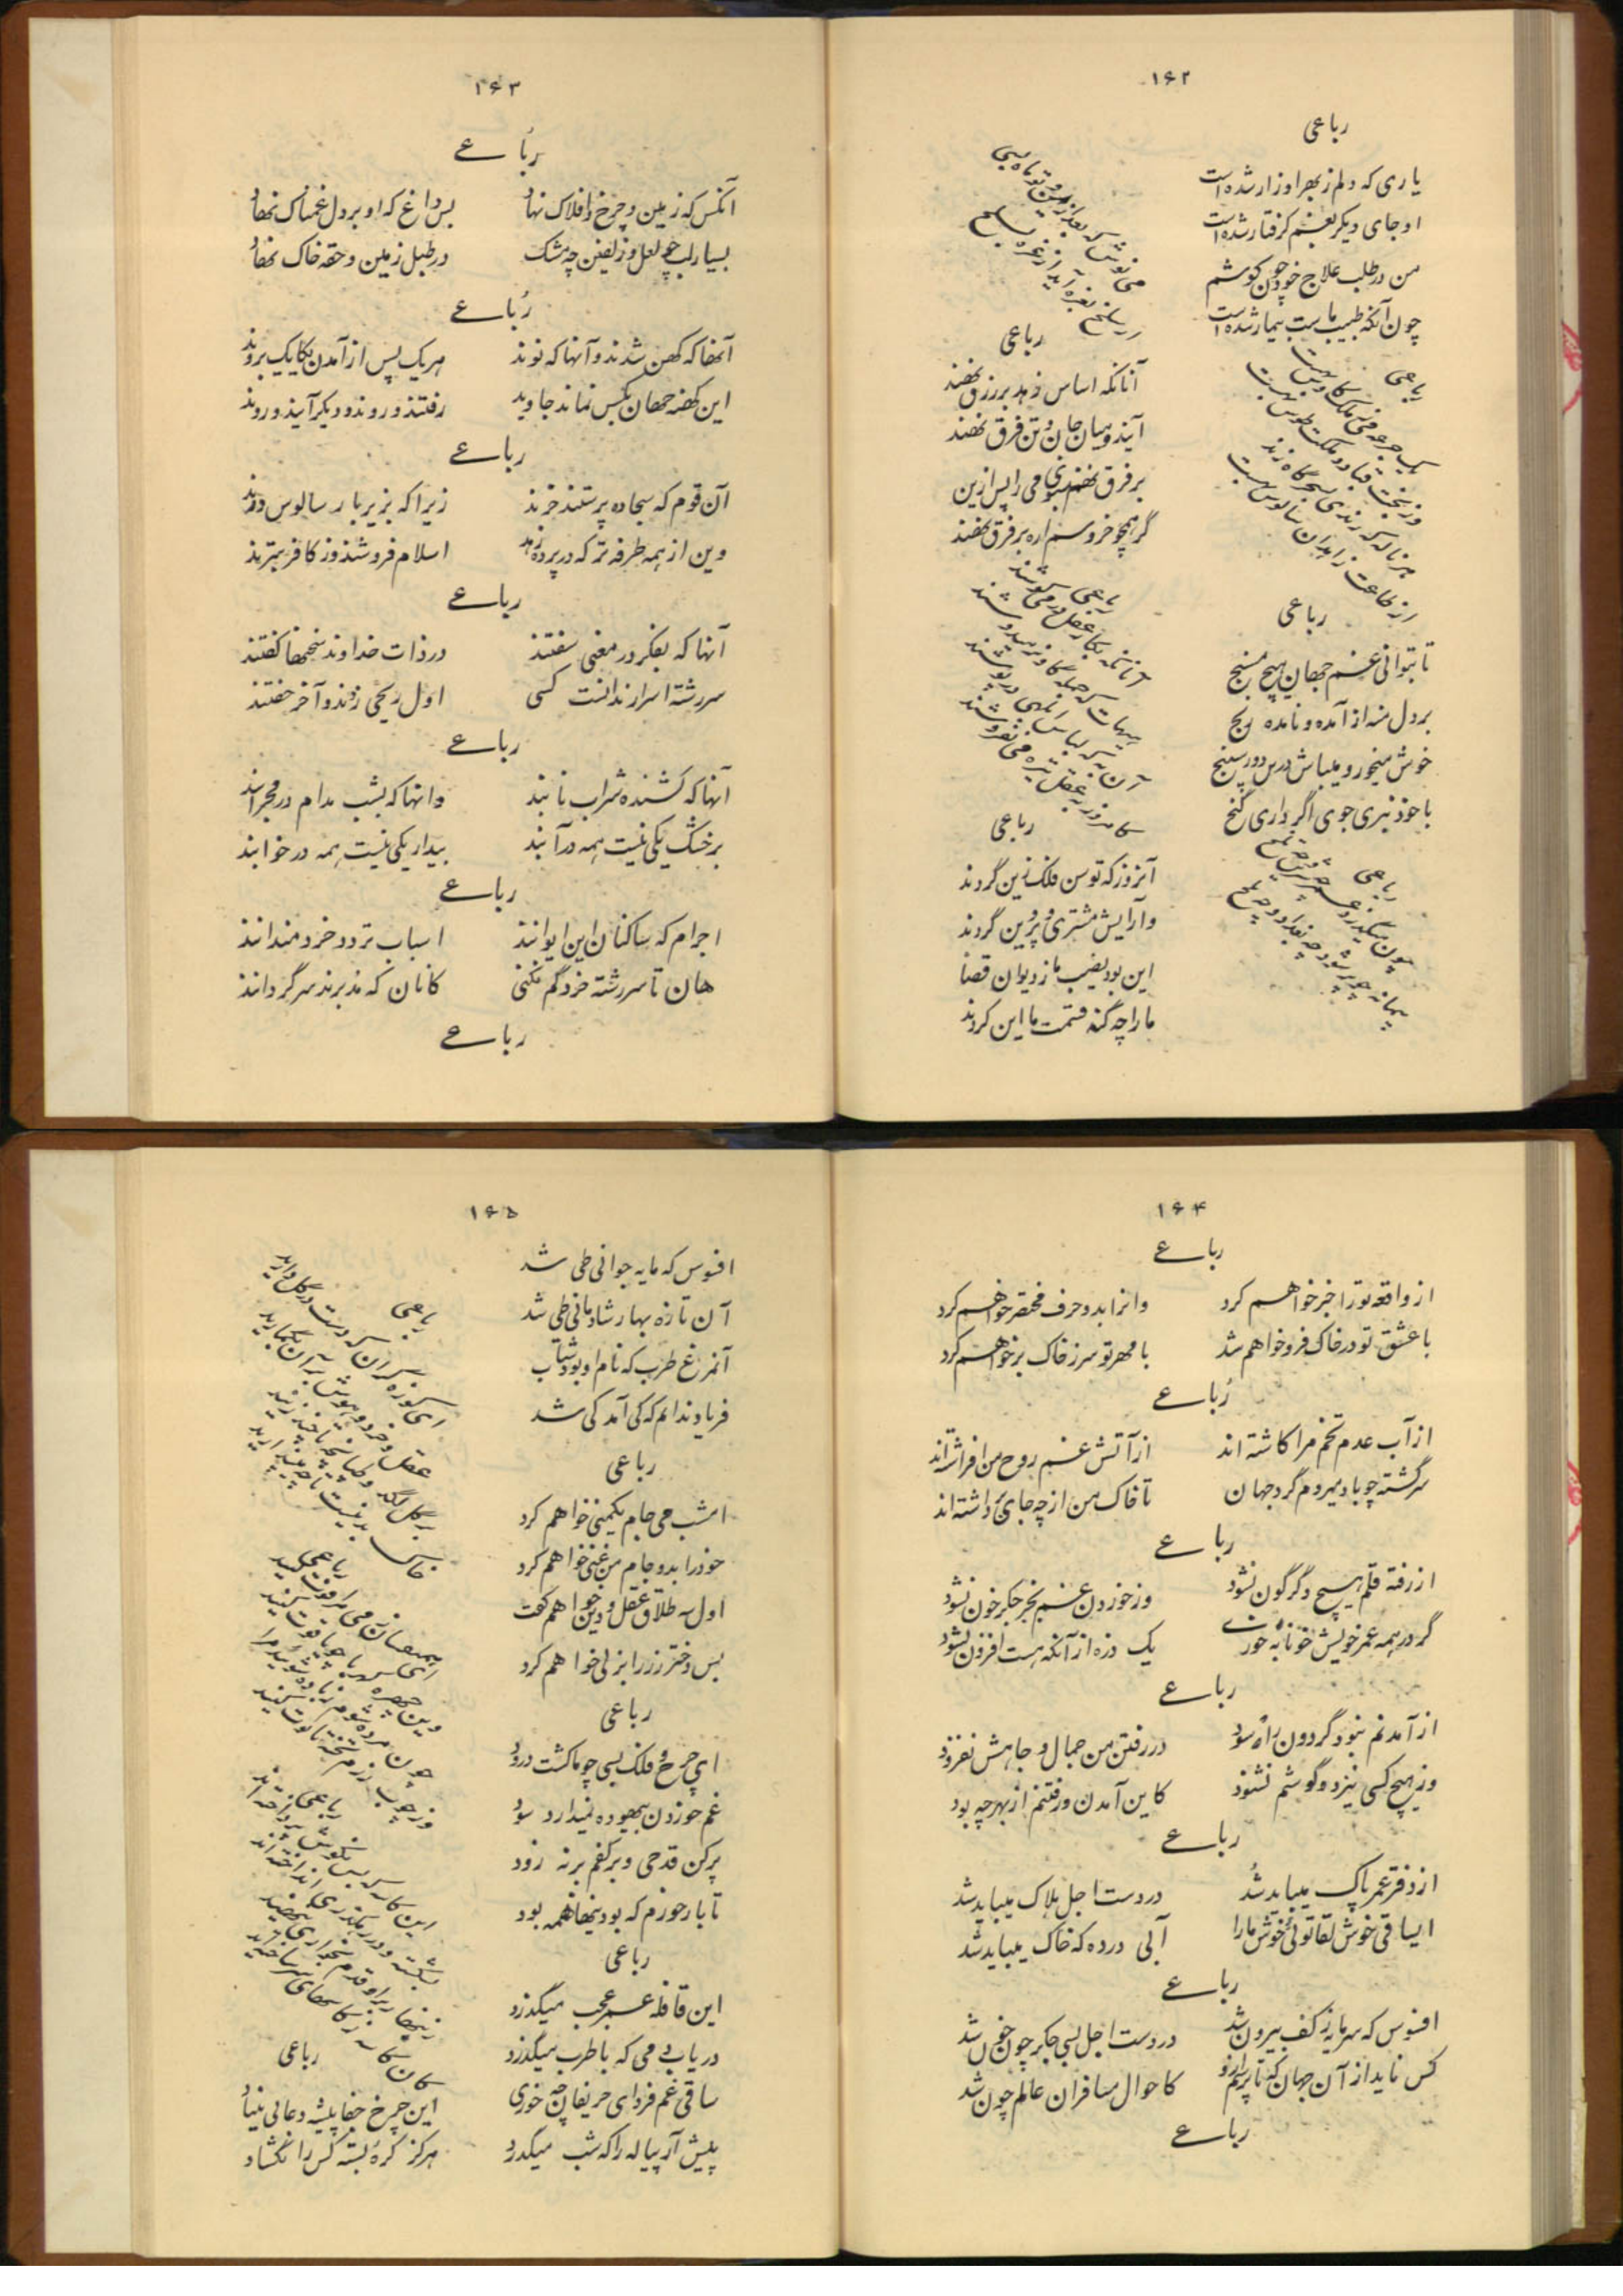 ۱۶۲
رباعی
یاری که دلم زبهر او زار شده است
او جای دیگر بغم گرفتار شده است
من در طلب علاج خود چون کوشم
چون آنکه طبیب ماست بیمار شده است
رباعی
یک جرعه می ز ملک کاوس به است
وز تخت قباد و ملکت طوس به است
هر ناله که رندی بسحرگاه زند
از طاعت زاهدان سالوس به است
رباعی
تا بتوانی غم جهان هیچ مسنج
بر دل منه از آمده و نامده رنج
خوش میخور و میباش درین دور سپنج
با خود نبری جوی اگر داری گنج
رباعی
چون میگذرد عمر چه شیرین و چه تلخ
پیمانه چو پر شود چه بغداد و چه بلخ
می نوش که بعد از من و تو ماه بسی
از سلخ بغره آید از غره بسلخ
رباعی
آنانکه اساس زهد بر زرق نهند
آیند و میان جان و تن فرق نهند
بر فرق نهم سبوی می را پس ازین
گر همچو خروسم اره بر فرق نهند
رباعی
آنانکه بکار عقل در میکوشند
هیهات که جمله گاو نر میدوشند
آن به که لباس ابلهی در پوشند
کامروز بعقل تره می نفروشند
رباعی
آنروز که توسن فلک زین کردند
وآرایش مشتری و پروین کردند
این بود نصیب ما ز دیوان قضا
ما را چه گنه قسمت ما این کردند
۱۶۳
رباعے
آنکس که زمین و چرخ و افلاک نهاد
بس داغ که او بر دل غمناک نهاد
بسیار لب چو لعل و زلفین چه مشک
در طبل زمین و حقه خاک نهاد
رباعے
آنها که کهن شدند و آنها که نوند
هر یک پس از آمدن یکایک بروند
این کهنه جهان بکس نماند جاوید
رفتند و روند و دیگر آیند و روند
رباعے
آن قوم که سجاده پرستند خرند
زیرا که بزیر بار سالوس درند
وین از همه طرفه تر که در پرده زهد
اسلام فروشند وز کافر بترند
رباعے
آنها که بفکر در معنی سفتند
در ذات خداوند سخنها گفتند
سر رشته اسرار ندانست کسی
اول زنخی زدند و آخر خفتند
رباعے
آنها که کشنده شراب نابند
وانها که بشب مدام در محرابند
بر خشک یکی نیست همه در آبند
بیدار یکی نیست همه در خوابند
رباعے
اجرام که ساکنان این ایوانند
اسباب تردد خردمندانند
هان تا سر رشته خرد گم نکنی
کانان که مدبرند سرگردانند
رباعے
۱۶۴
رباعے
از واقعه تو را خبر خواهم کرد
وانرا بدو حرف مختصر خواهم کرد
با عشق تو در خاک فرو خواهم شد
با مهر تو سر ز خاک بر خواهم کرد
رباعے
از آب عدم تخم مرا کاشته اند
از آتش غم روح من افراشته اند
سرگشته چو باد میروم گرد جهان
تا خاک من از چه جای برداشته اند
رباعے
از رفته قلم هیچ دگرگون نشود
وز خوردن غم بجز جگر خون نشود
گر در همه عمر خویش خونابه خوری
یک ذره از آنکه هست افزون نشود
رباعے
از آمدنم نبود گردون را سود
در رفتن من جمال و جاهش نفزود
وز هیچ کسی نیز دو گوشم نشنود
کاین آمدن و رفتنم از بهر چه بود
رباعے
از دفتر عمر پاک میباید شد
در دست اجل هلاک میباید شد
ایساقی خوش لقا توئی خوش ما را
آبی در ده که خاک میباید شد
رباعے
افسوس که سرمایه ز کف بیرون شد
در دست اجل بسی جگر چون خون شد
کس ناید از آن جهان که تا پرسم از او
کاحوال مسافران عالم چون شد
رباعے
۱۶۵
افسوس که مایه جوانی طی شد
آن تازه بهار شادمانی طی شد
آنمرغ طرب که نام او بود شباب
فریاد ندانم که کی آمد کی شد
رباعی
امشب می جام یکمنی خواهم کرد
خود را بدو جام من غنی خواهم کرد
اول سه طلاق عقل و دین خواهم گفت
پس دختر رز را بزنی خواهم کرد
رباعی
ای چرخ و فلک بسی چو ما کشت درود
غم خوردن بیهوده نمیدارد سود
پر کن قدحی و بر کفم بر نه زود
تا باز خورم که بودنیها همه بود
رباعی
این قافله عمر عجب میگذرد
دریاب دمی که با طرب میگذرد
ساقی غم فردای حریفان چه خوری
پیش آر پیاله را که شب میگذرد
رباعی
ای کوزه گران که دست در گل دارید
عقل و خرد و هوش بر آن بگمارید
بر گل لگد و طپانچه تا چند زنید
خاک بدنیست تا چه میپندارید
رباعی
ای همنفسان ز می مرا قوت کنید
وین چهره کهربا چو یاقوت کنید
چون مرده شوم بباده شوئید مرا
وز چوب رزم تخته تابوت کنید
رباعی
این کاسه که بس نکوش پرداخته اند
بشکسته و در رهگذری انداخته اند
زنهار بر او قدم بخواری ننهید
کان کاسه ز کاسهای سر ساخته اند
رباعی
این چرخ جفا پیشه و عالی بنیاد
هرگز گره بسته کس را نگشاد